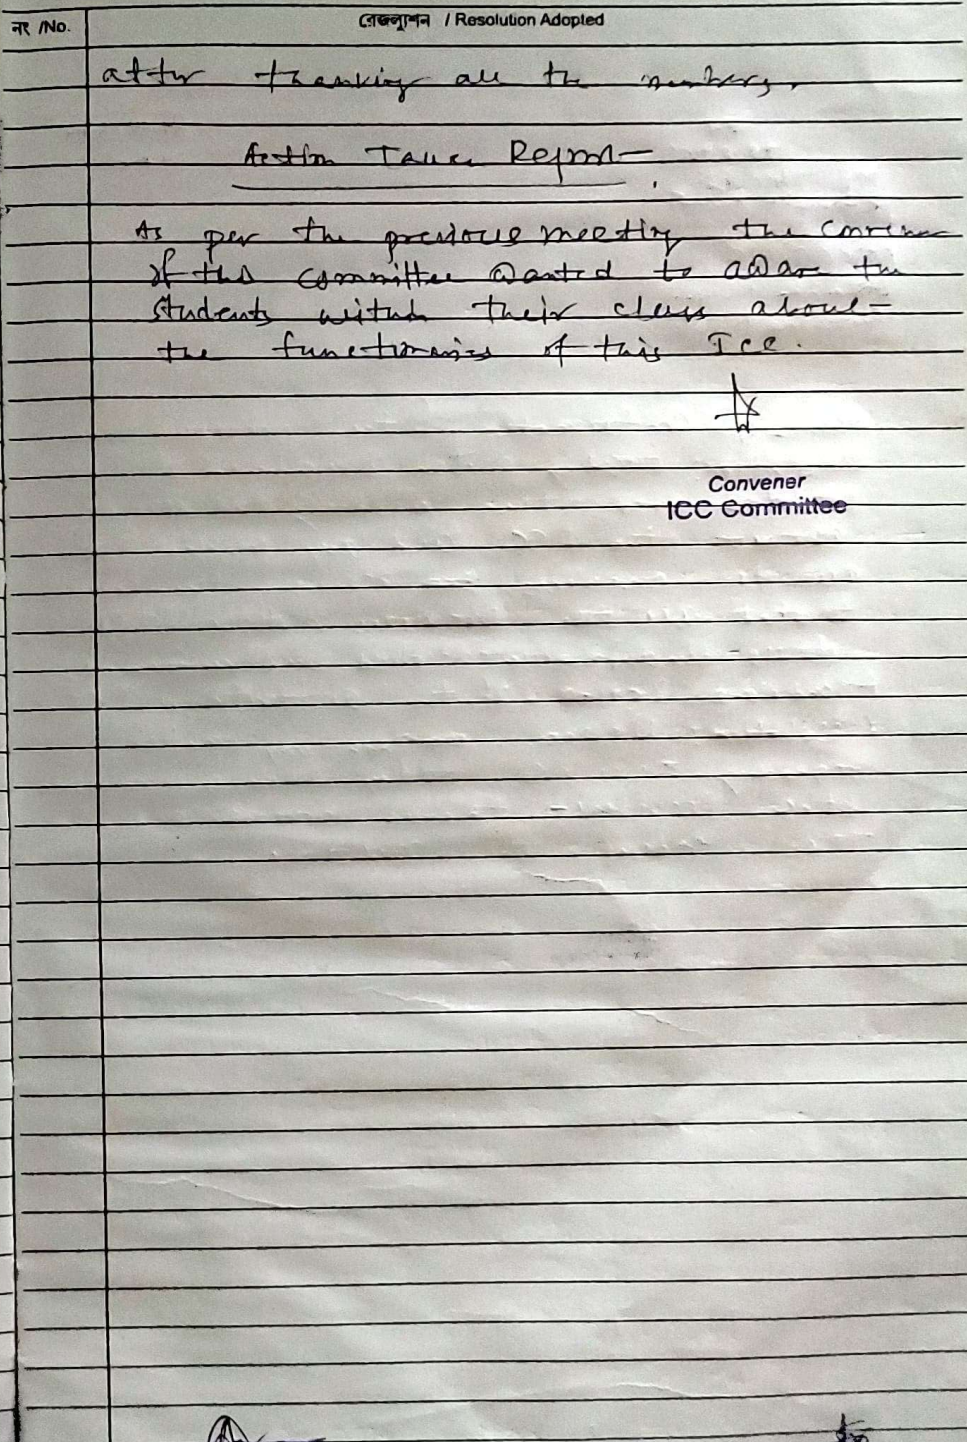 নং /No.
রেজল্যুশন / Resolution Adopted
after thanking all the members.
Action Taken Report
As per the previous meeting the convener
of this committee wanted to aware the
students within their class about
the functionaries of this ICC.
Convener
ICC Committee